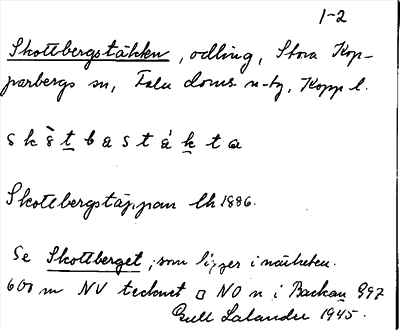 1-2
Skottbergstäkten, odling, Stora Kop-
parbergs sn, Falu doms. n-tg, Kopp l.
s k ò̀ t b a s t á k t a
Skottbergstäppan lk 1886.
Se Skottberget, som ligger i närheten.
600 m NV tecknet □ NO n i Backan 997
Gull Lalander 1945.